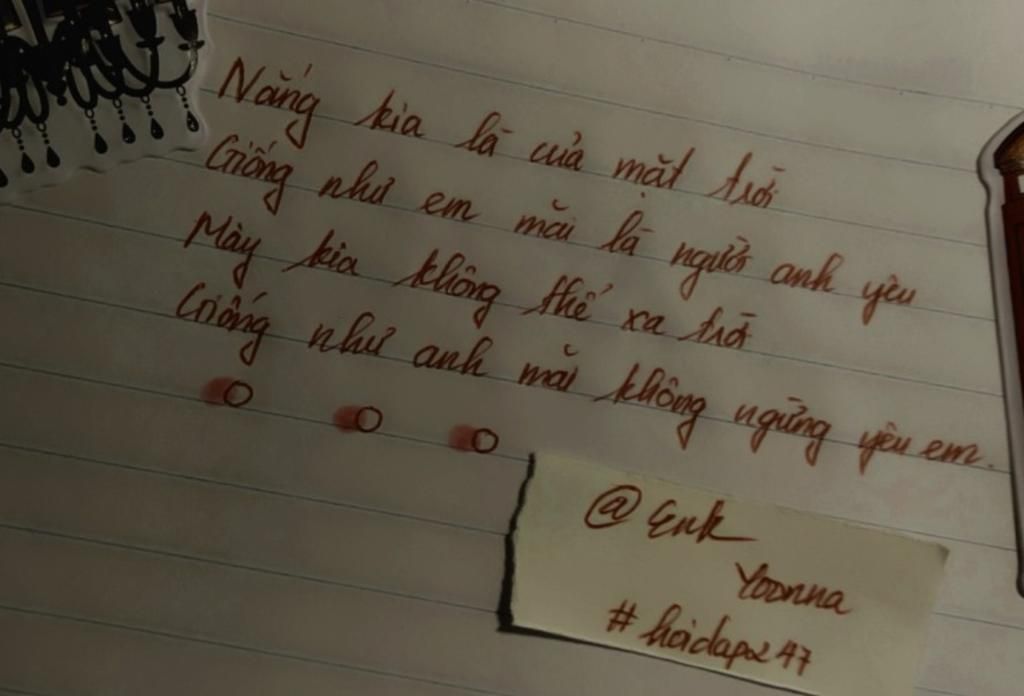 Nắng kia là của mặt trời
Giống như em mãi là người anh yêu
Mây kia không thể xa trời
Giống như anh mãi không ngừng yêu em.
@ Enk
Yoonna
# hoidap247